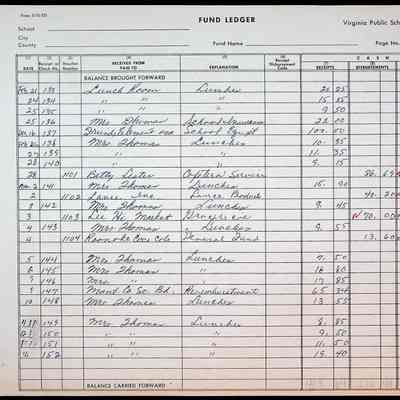 FUND LEDGER
Virginia Public Sch
School
City
County
Fund Name
Page No.
DATE
Receipt or Check No.
Voucher Number
RECEIVED FROM
PAID TO
EXPLANATION
Receipt Disbursement Code
RECEIPTS
CASH
DISBURSEMENTS
BALANCE BROUGHT FORWARD
Feb 21 133 Lunch Room Lunches 21 25
24 134 " " " 15 85
25 135 " " " 9 50
25 136 Mrs Thomas School 22 00
137 School Equipt 100 00
138 Mrs Thomas Lunches 10 35
27 139 " " " 11 35
28 140 " " " 9 15
28 1101 Betty Lester Cafeteria Services 86 69
Mar 2 141 Mrs Thomas Lunches 15 90
2 1102 Lance Inc Lance Products 40 20
3 142 Mrs Thomas Lunches 9 45
3 1103 Lee Hi Market Groceries 70 00
4 143 Mrs Thomas Lunches 9 55
4 1104 Roanoke Coca Cola General Fund 13 60
5 144 Mrs Thomas Lunches 7 50
6 145 Mrs Thomas " 16 60
9 146 Mrs " " 17 85
9 147 Mont Co Sc Bd. Reimbursement 65 34
10 148 Mrs Thomas Lunches 13 55
149 Mrs Thomas Lunches 8 85
150 " " " 9 50
151 " " " 11 50
152 " " " 19 40
BALANCE CARRIED FORWARD